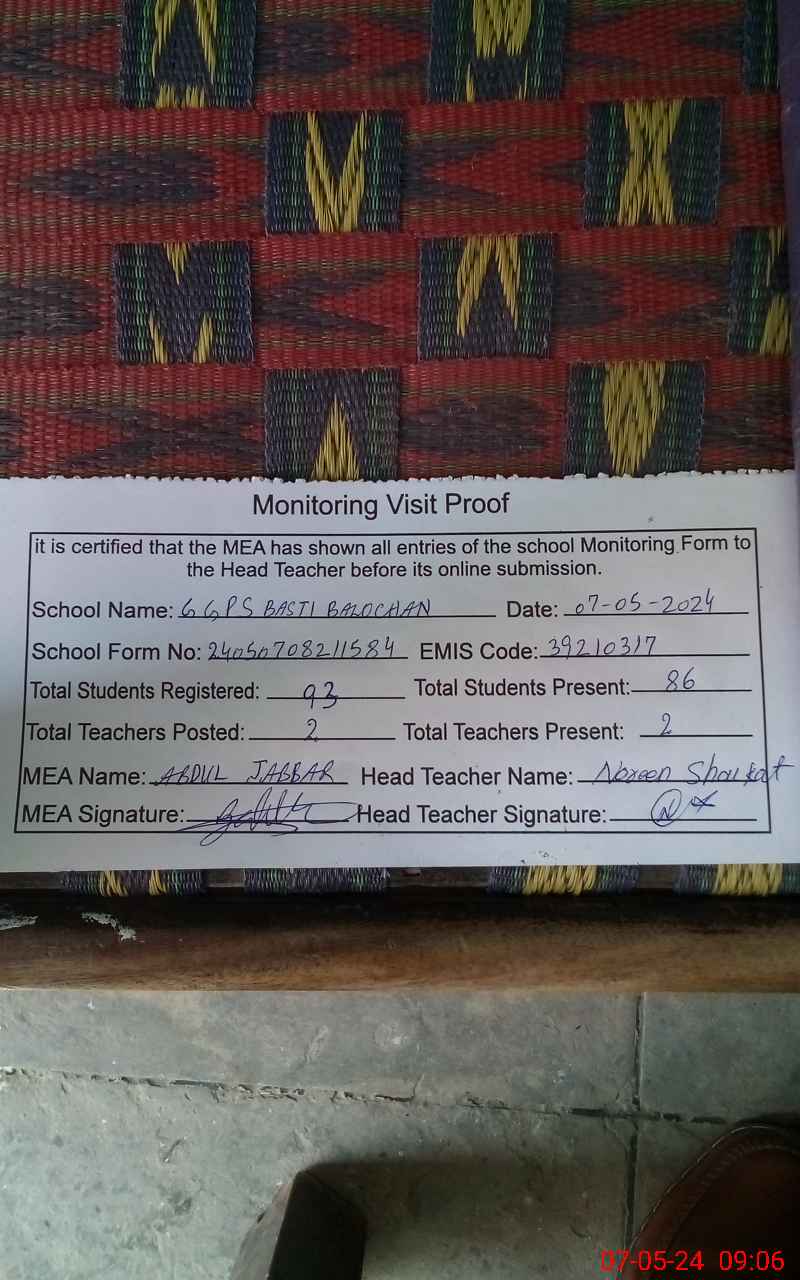 Monitoring Visit Proof
it is certified that the MEA has shown all entries of the school Monitoring Form to
the Head Teacher before its online submission.
School Name: GGPS BASTI BALOCHAN Date: 07-05-2024
School Form No: 24050708211584 EMIS Code: 39210317
Total Students Registered: 93 Total Students Present: 86
Total Teachers Posted: 2 Total Teachers Present: 2
MEA Name: ABDUL JABBAR Head Teacher Name: Noreen Shoukat
MEA Signature: Head Teacher Signature:
07-05-24 09:06